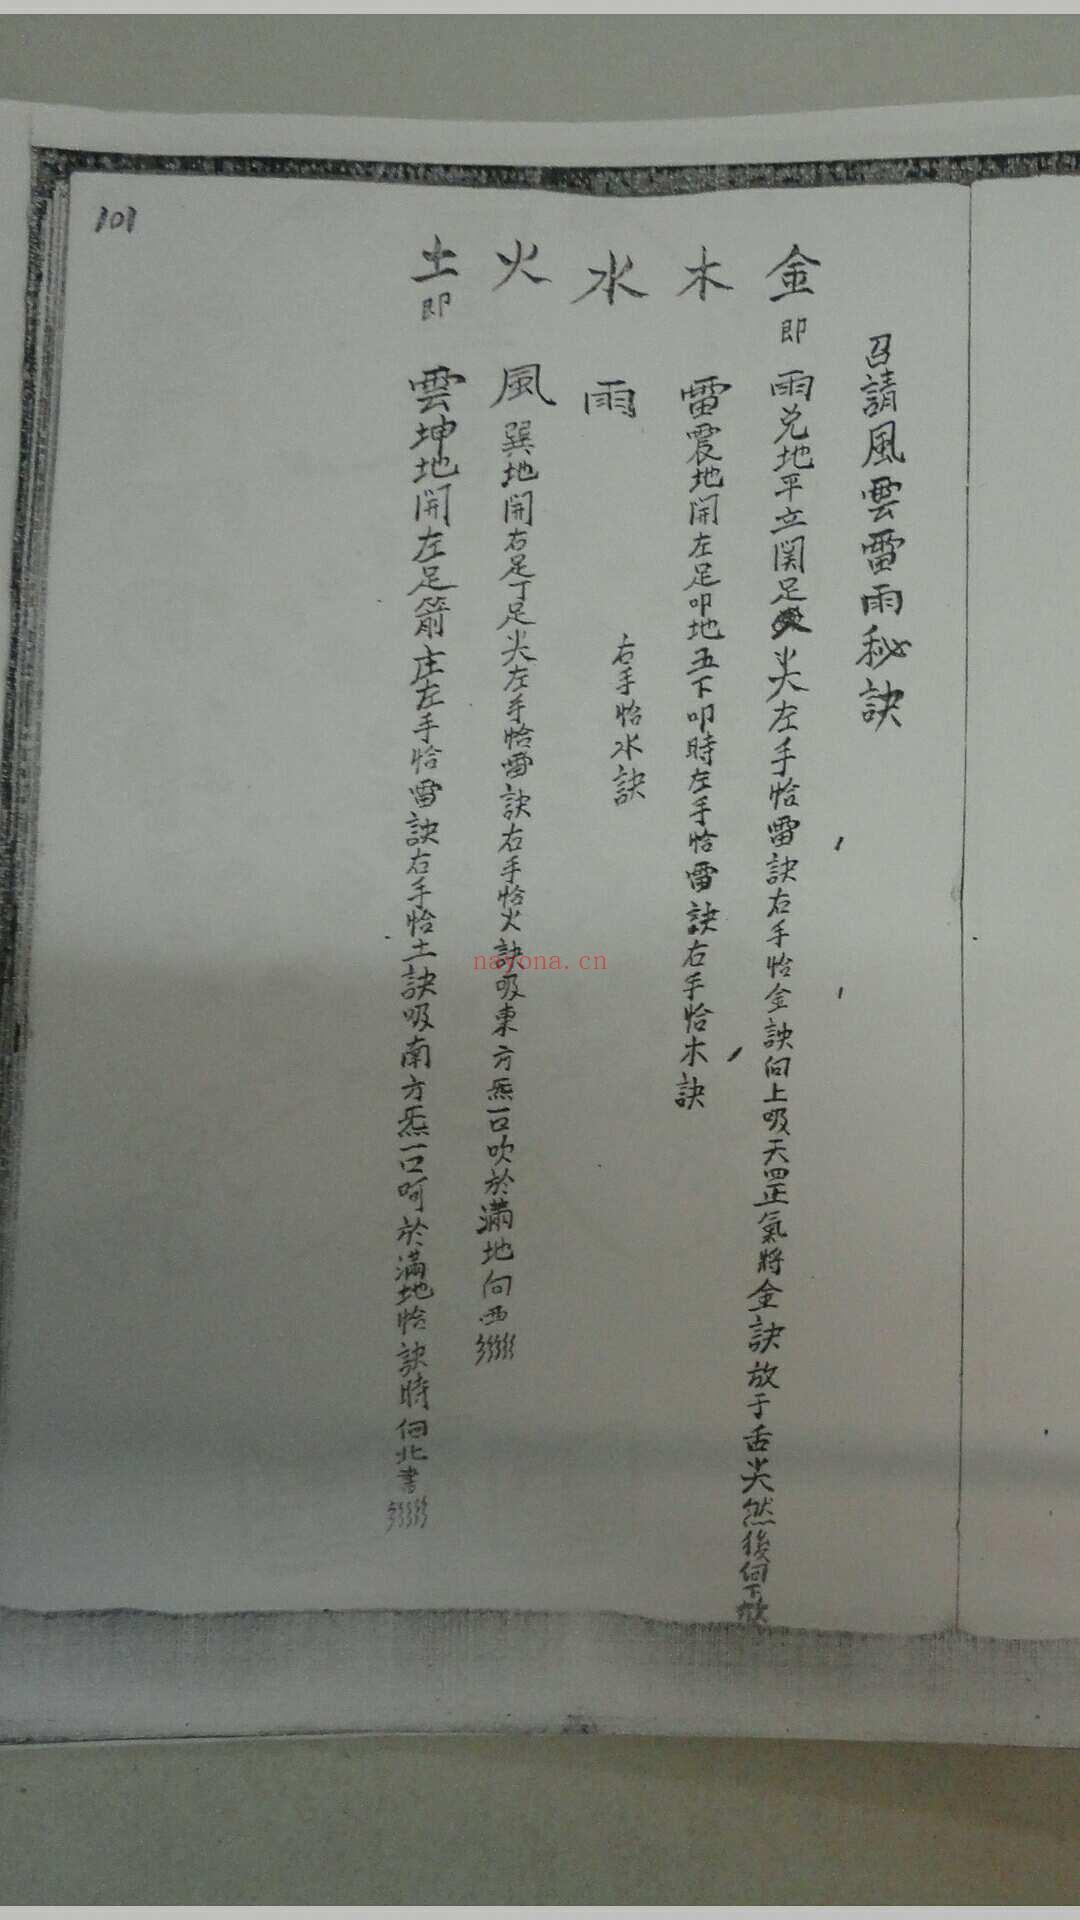 101
召請風雲雷雨秘訣
金即雨兑地平立関足尖左手恰雷訣右手恰金訣向上吸天罡正氣將金訣放于舌尖然後向下放
木雷震地開左足叩地五下叩時左手恰雷訣右手恰木訣
水雨右手恰水訣
火風巽地開右足丁足尖左手恰雷訣右手恰火訣吸東方炁一口吹於滿地向西
土即雲坤地開左足箭庄左手恰雷訣右手恰土訣吸南方炁一口呵於滿地恰訣時向北書
nayona.cn